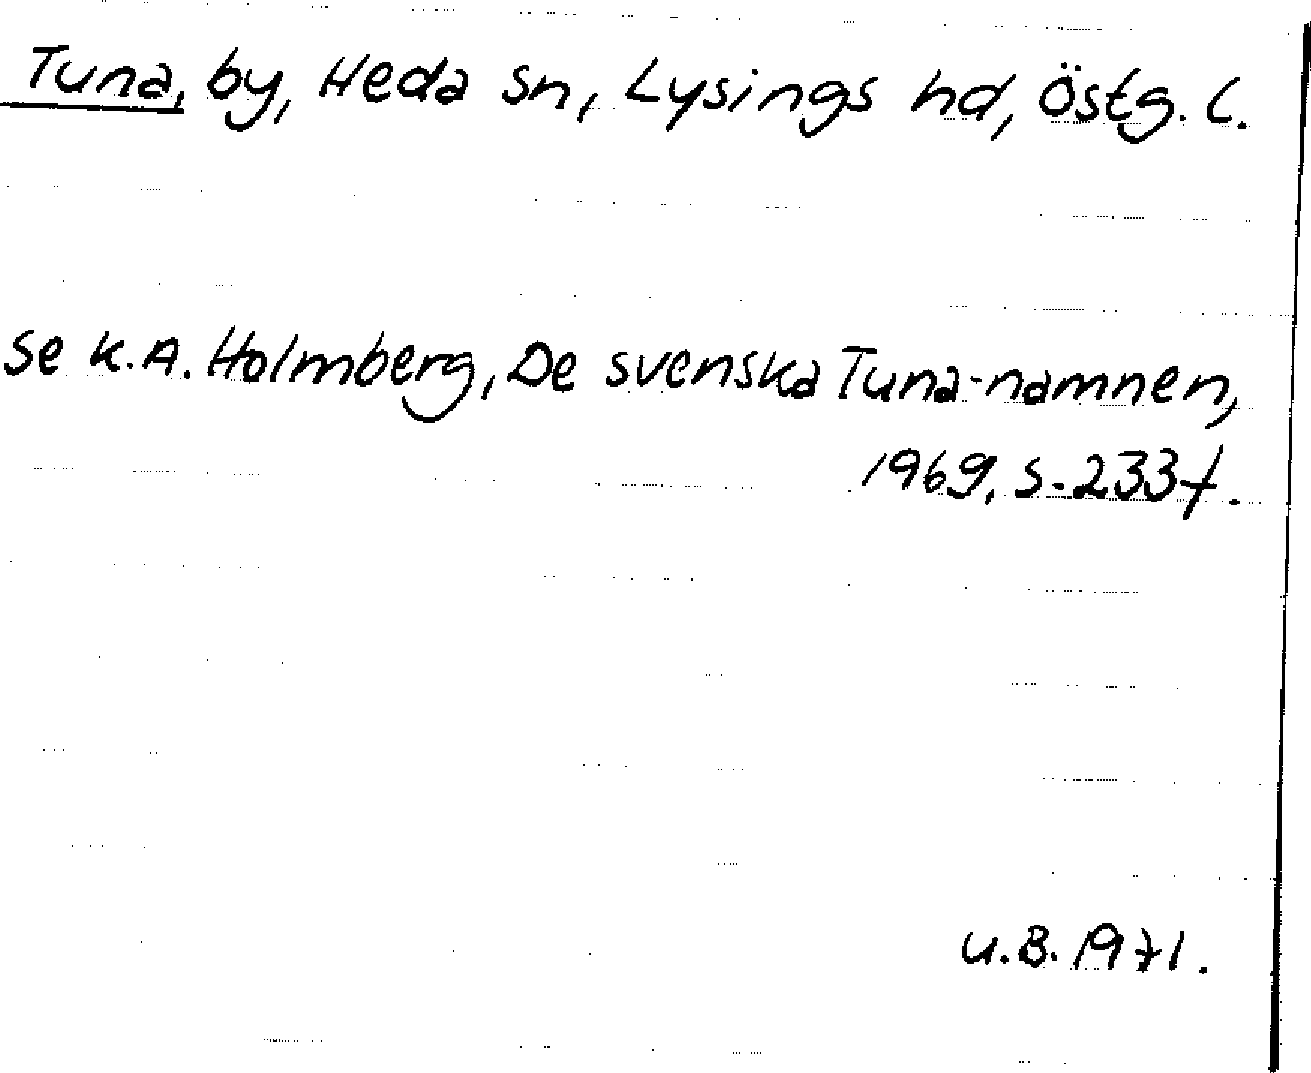 Tuna, by, Heda sn, Lysings hd, Östg. l.
se K.A. Holmberg, De svenska Tuna-namnen,
1969, s. 233 f.
U.B. 1971.